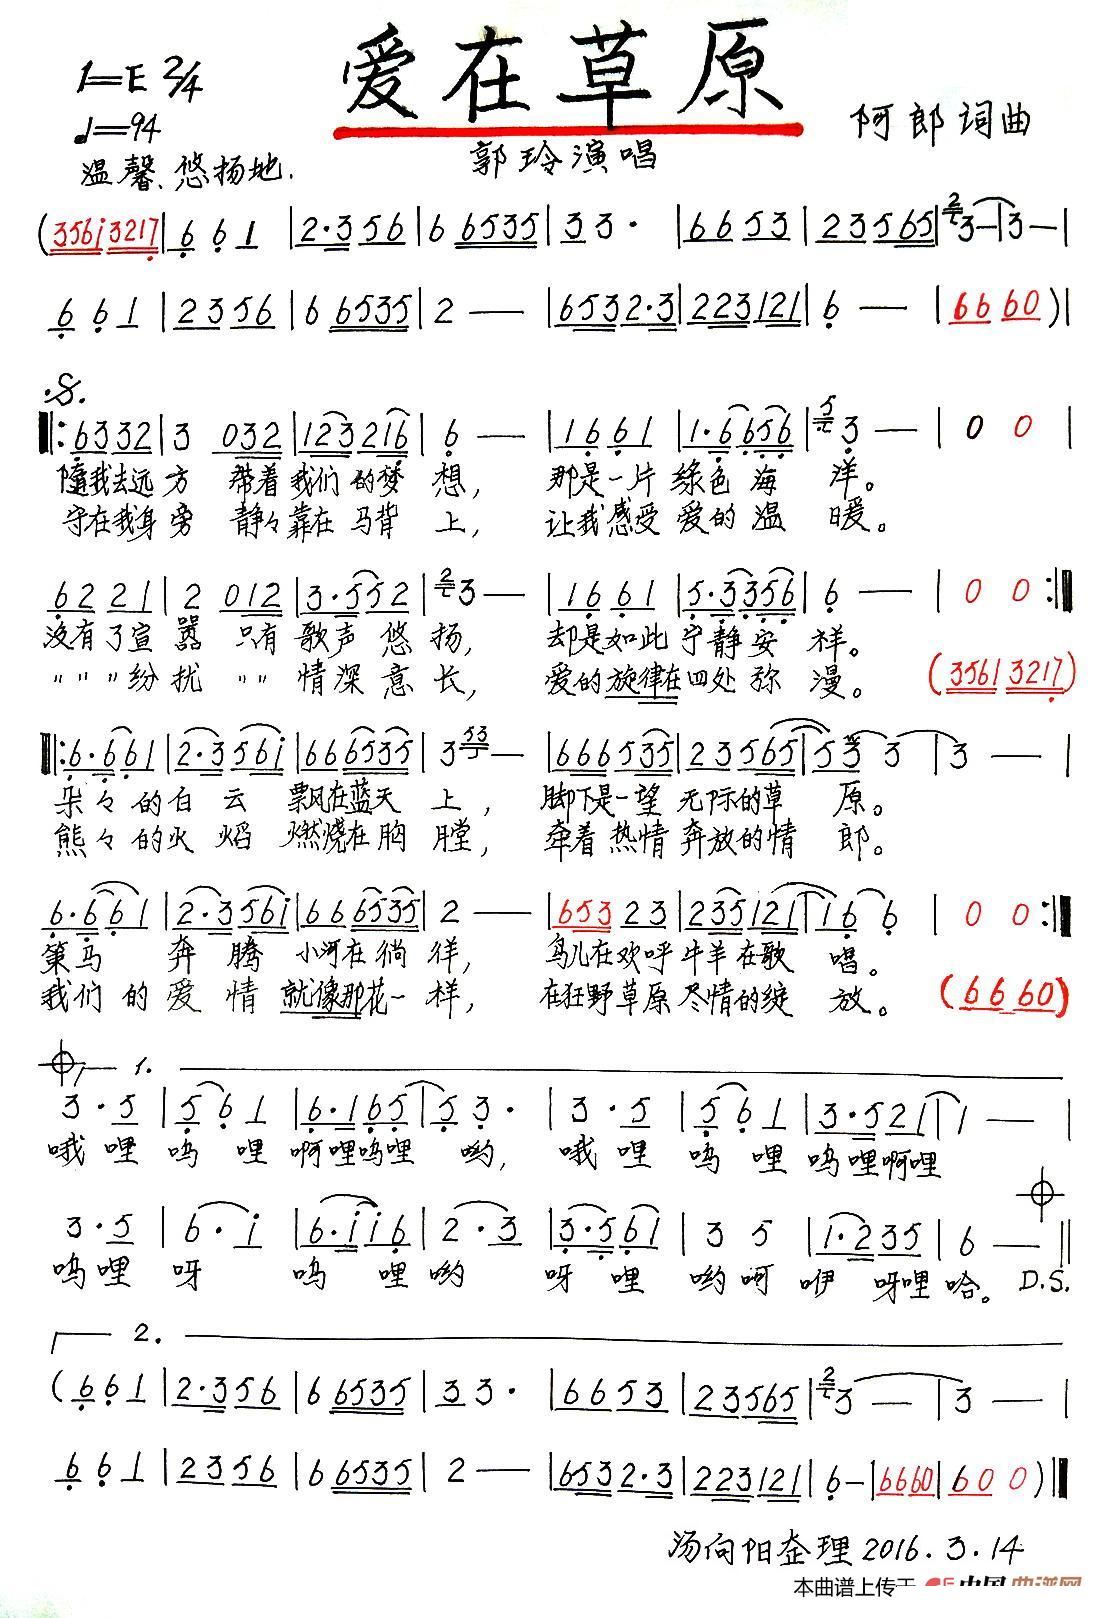 爱在草原
1=E 2/4
♩=94
温馨、悠扬地.
郭玲演唱
阿郎词曲
(356i 3217|6 6 1|2·3 56|6 6535|3 3·|66 53|23 565|²3—|3—|
6 6 1|23 56|6 6535|2 —|653 2·3|223 121|6 —|66 60)|
𝄋
‖:63 32|3 032|123 216|6 —|16 61|1·6 656|⁵3 —|0 0|
随我去远方 带着我们的梦 想, 那是一片绿色海 洋。
守在我身旁 静々靠在马背 上, 让我感受爱的温 暖。
62 21|2 012|3·5 52|²3 —|16 61|5·3 356|6 —|0 0:‖
没有了宣嚣 只有歌声悠 扬, 却是如此宁静安 祥。
〃〃〃纷扰 〃〃情深意 长, 爱的旋律在四处弥 漫。
(3561 3217)
‖:6·6 61|2·3 56i|66 6535|3 ⁵³—|66 653|23 565|5 3 3|3 —|
朵々的白云 飘在蓝天 上, 脚下是一望无际的草 原。
熊々的火焰 燃烧在胸 膛, 牵着热情奔放的情 郎。
6·6 61|2·3 56i|66 6535|2 —|653 23|235 121|1 6 6|0 0:‖
策马奔腾 小河在徜 徉, 鸟儿在欢呼牛羊在歌 唱。
我们的爱情 就像那花一样, 在狂野草原尽情的绽 放。
(66 60)
1.
3·5|5 6 1|6·1 65|5 3·|3·5|5 6 1|3·5 21|1 —|
哦哩呜哩啊哩呜哩 哟, 哦哩呜哩呜哩啊哩
3·5|6·i|6·i i6|2·3|3·5 61|3 5|1·2 35|6 —‖
呜哩呀 呜哩哟 呀哩哟呵咿呀哩哈。 D.S.
2.
(6 6 1|2·3 56|6 6535|3 3·|66 53|23 565|²3 —|3 —|
6 6 1|23 56|6 6535|2 —|653 2·3|223 121|6 —|6660|60 0)‖
汤向阳整理 2016.3.14
本曲谱上传于 中国曲谱网